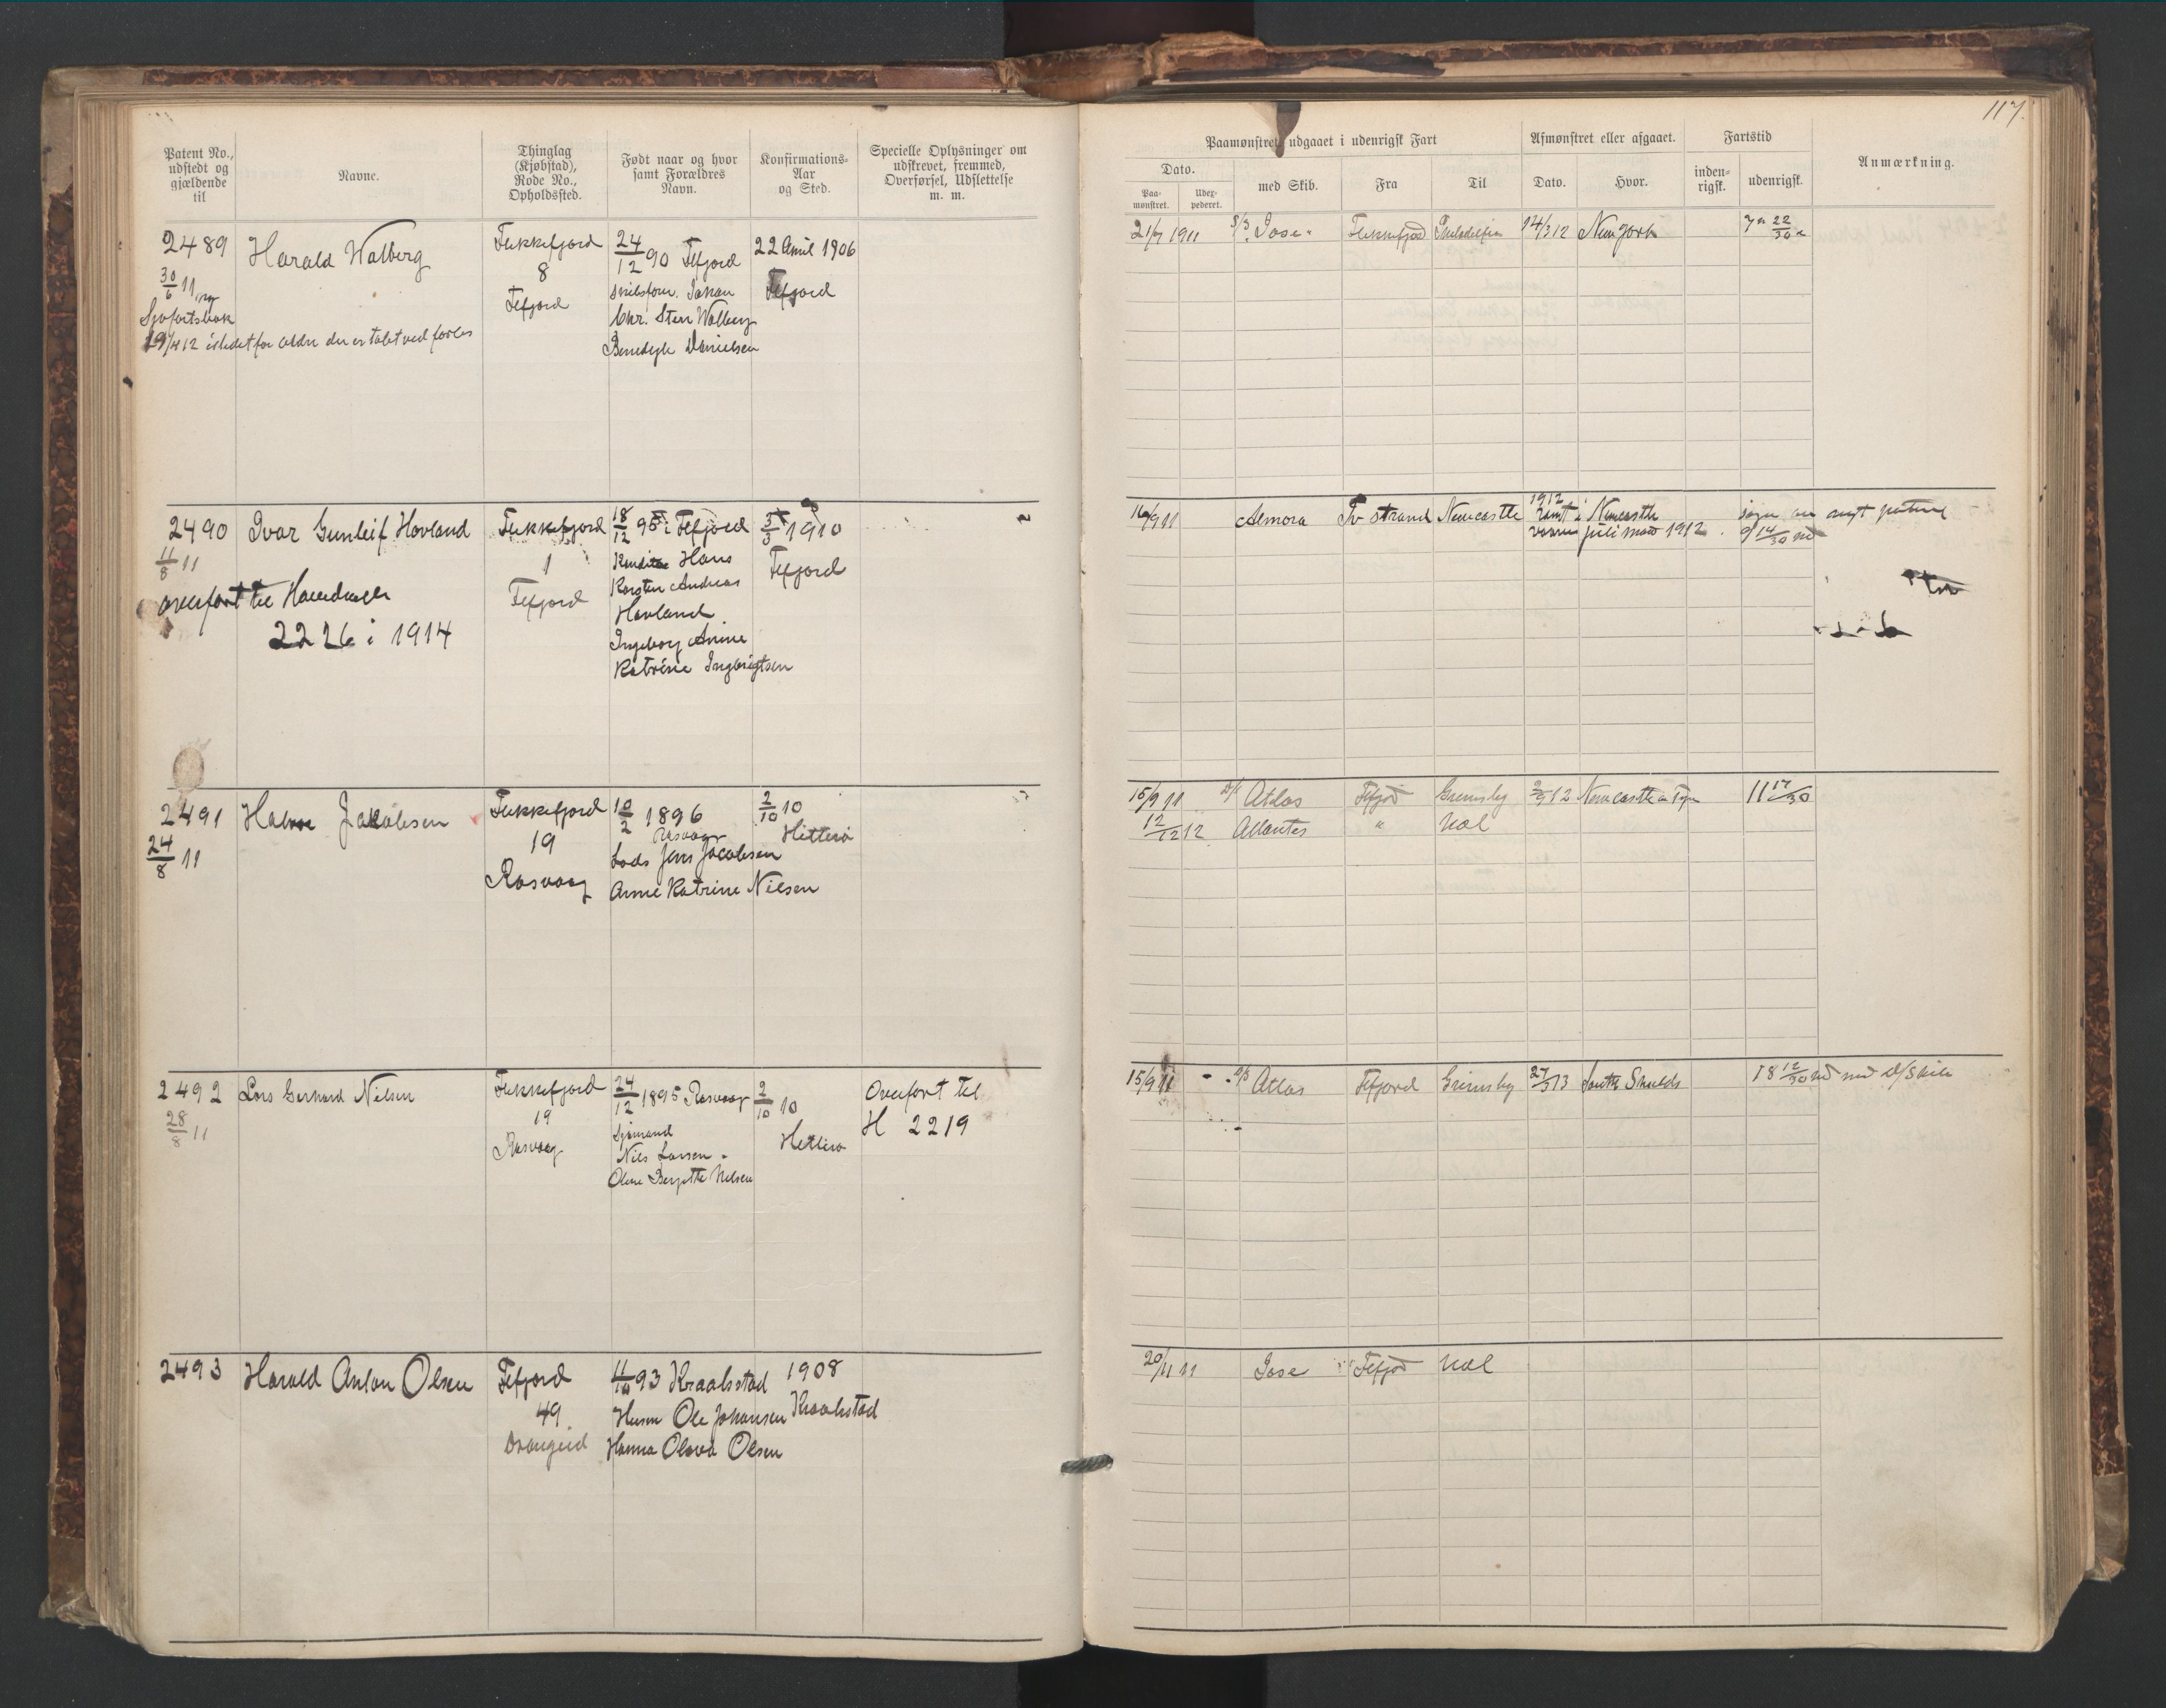 117.
Patent No., udstedt og gjældende til
Navne.
Thinglag (Kjøbstad), Rode No., Opholdssted.
Født naar og hvor samt Forældres Navn.
Konfirmations-Aar og Sted.
Specielle Oplysninger om udskrevet, fremmed, Overførsel, Udslettelse m. m.
Paamønstret, udgaaet i udenrigsk Fart
Afmønstret eller afgaaet.
Fartstid
Anmærkning.
Dato.
Paa-mønstret.
med Skib.
Fra
Til
Dato.
Hvor.
inden-rigsk.
udenrigsk.
2489
30/6 11
Harald Walberg
Flekkefjord
8
Fefjord
24/12 90 Fefjord
Chr. Sten Walberg
Benedyle Danielsen
22 April 1906
Fefjord
Sjøfartsbok
19/4 12 istedetfor ældre der er tabt ved forlis
21/7 1911 S/S Jose Flekkefjord Philadelfia 14/3 12 New York 7 m 22/30
2490
11/8 11
Ivar Gunleif Hovland
overført til Hovedrulle
2226 i 1914
Flekkefjord
1
Fefjord
18/12 95 i Fefjord
Hans
Karsten Andreas
Hovland
Ingeborg Anine
Katrine Ingbrigtsen
3/3 1910
Fefjord
16/9 11 Almora Tv strand Newcastle 1912 Newcastle
juli 1912
9 14/30
2491
24/8 11
Halvor Jakobsen
Flekkefjord
19
Rasvaag
10/2 1896
Rasvaag
Lods Jens Jacobsen
Anne Katrine Nilsen
2/10 10
Hitterø
15/9 11 D/S Atlas Fefjord Grimsby 2/9 12 Newcastle on Tyne 11 17/30
12/12 12 Atlantes " Hål
2492
28/8 11
Lars Gerhard Nilsen
Flekkefjord
19
Rasvaag
24/12 1895 Rasvaag
Sjømand
Nils Larsen
Oline Bergitte Nilsen
2/10 10
Hitterø
Overført til
H 2219
15/9 11 D/S Atlas Fefjord Grimsby 27/3 13 South Shields 18 12/30 md med D/Skib
2493
Harald Anton Olsen
Fefjord
49
Drangeid
11/10 93 Kraakstad
Husm Ole Johansen
Hanna Olava Olsen
1908
Kraakstad
20/11 11 Jose Fefjord Hål